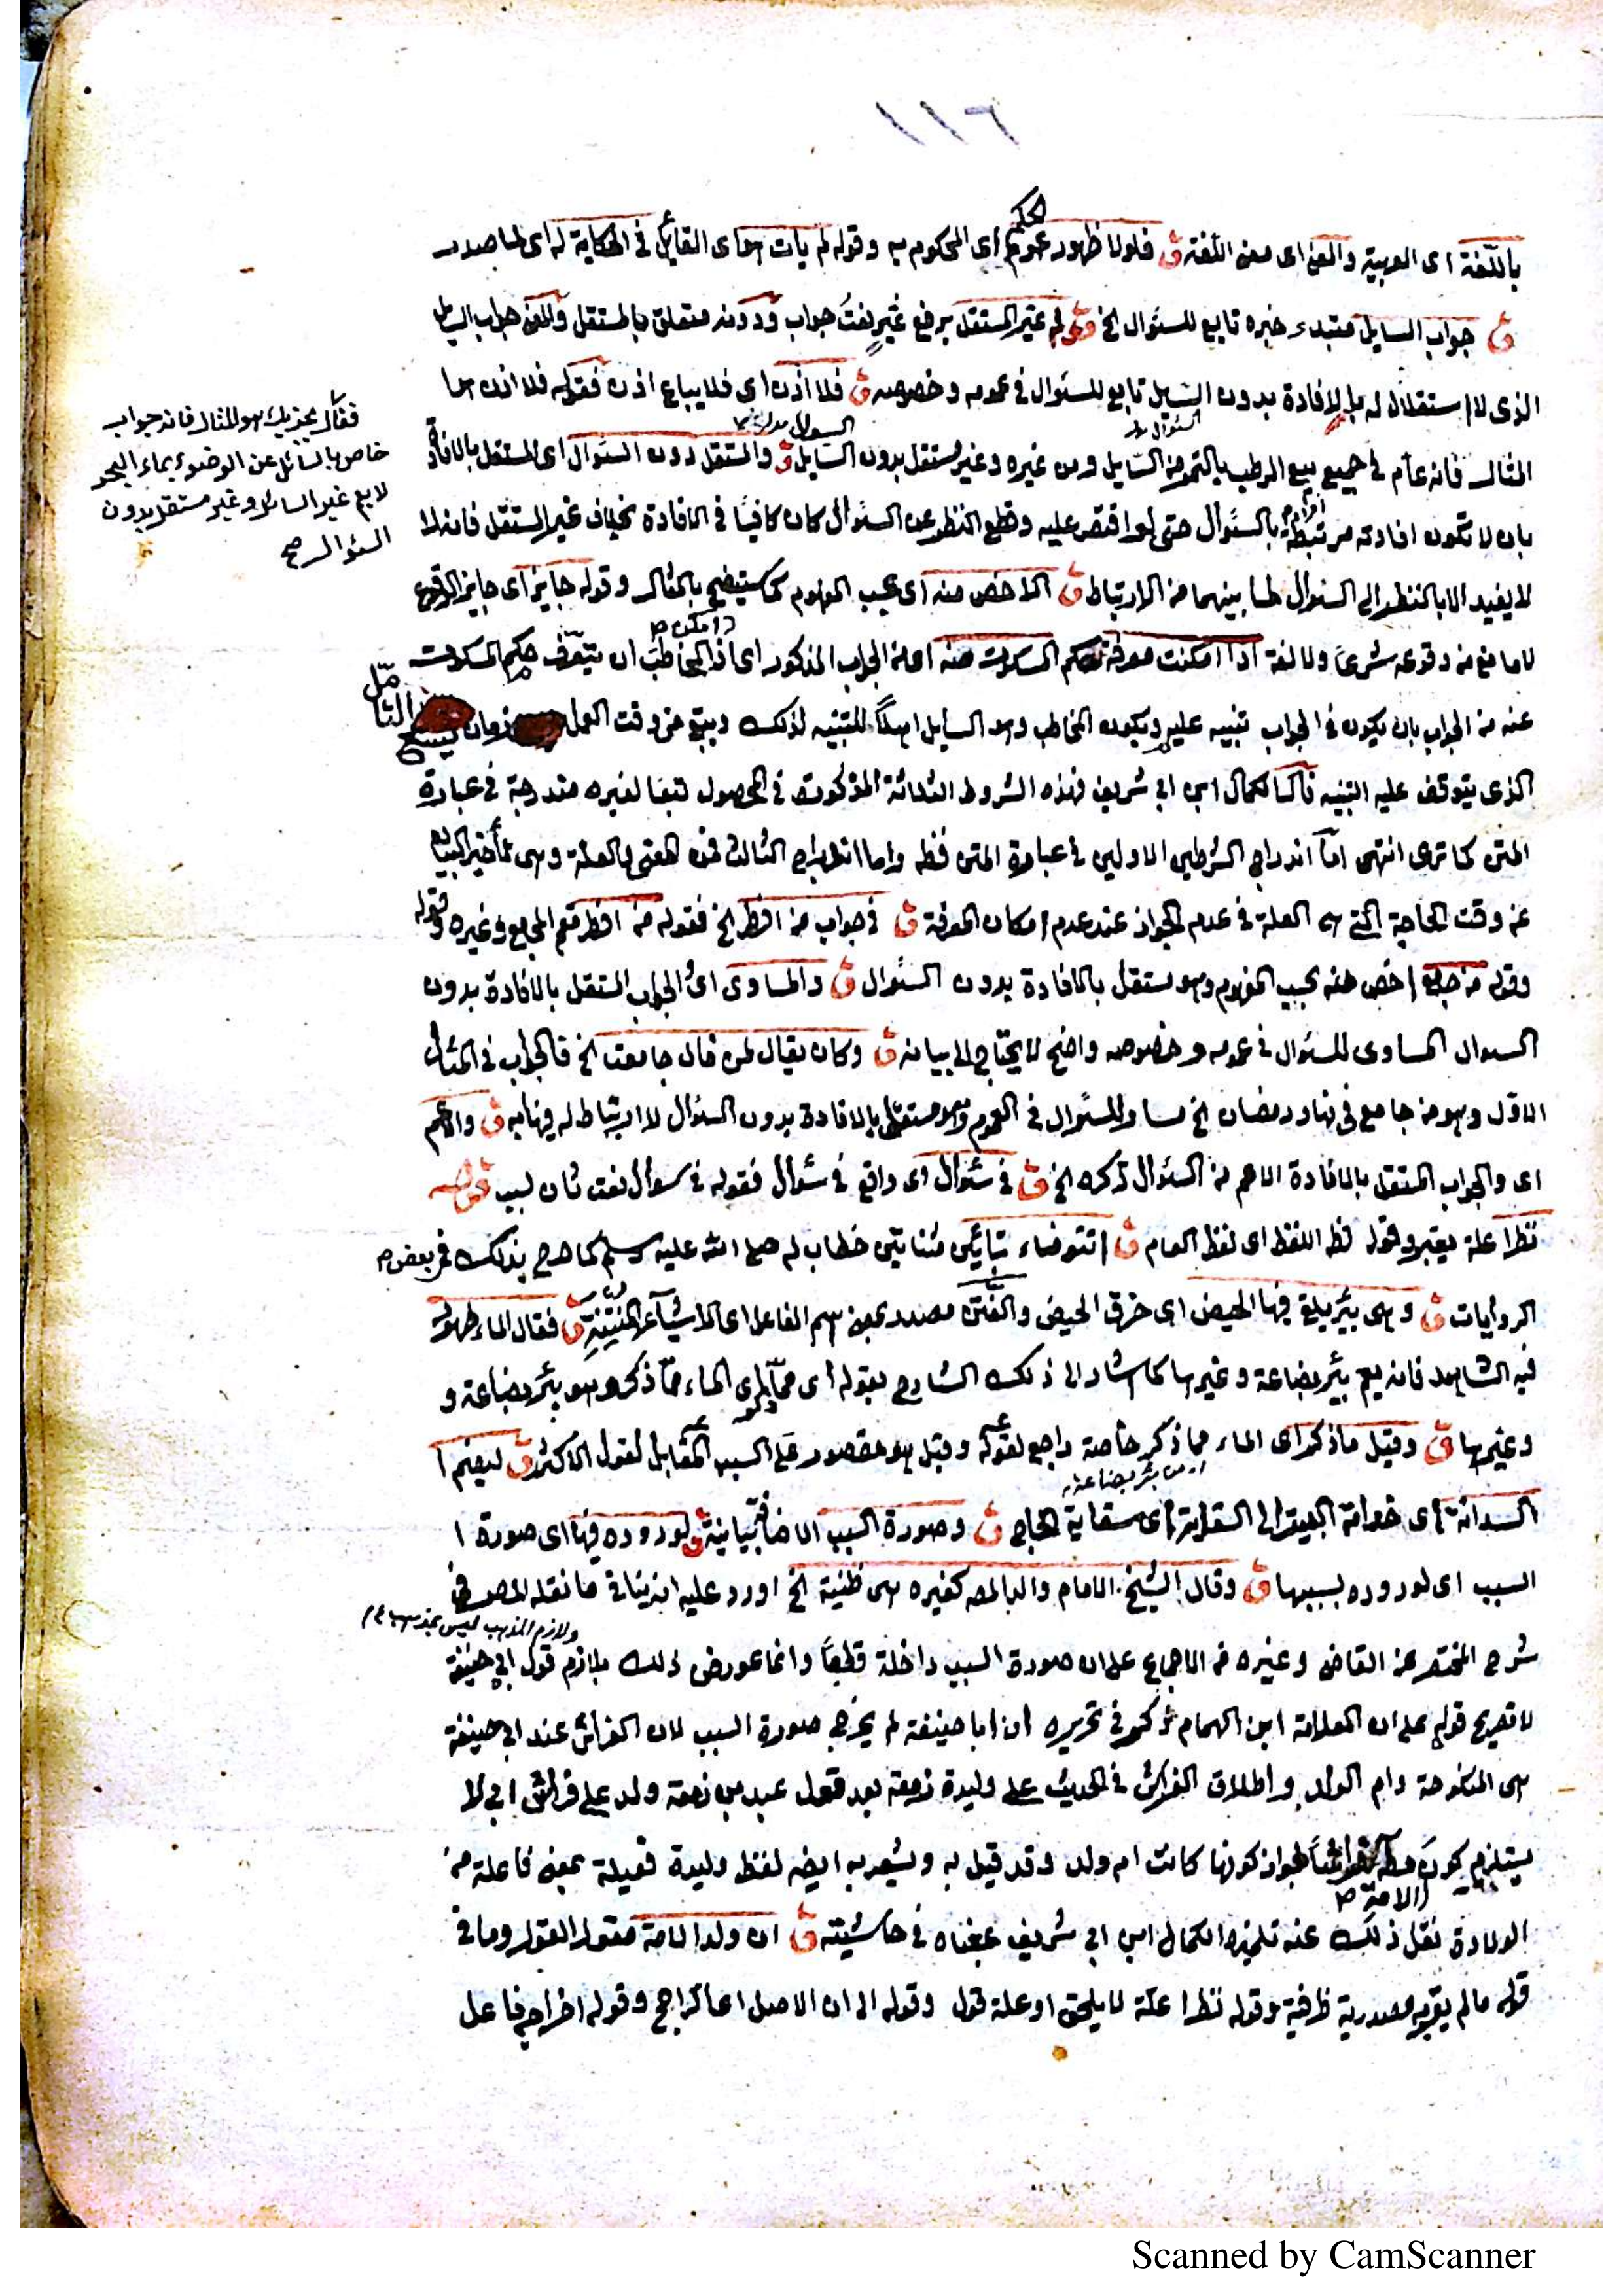 ١١٦
باللغة اى العربية والمعنى اى معنى اللغة ق فلولا ظهور عموم الحكم اى المحكوم به وقوله لم يأت هو اى القائل فى الحكاية له اى لما صدر
ق جواب السايل مبتدء خبره تابع للسؤال الخ قوله غير المستقل برفع غير نعت جواب ودونه متعلق بالمستقل والمعنى جواب السايل
الذى لا استقلال له بالافادة بدون السايل تابع للسؤال فى عمومه وخصوصه ق فلا اذن اى فلا يباع اذن فقوله فلا اذن
المثال فانه عام فى جميع بيع الرطب بالتمر من السايل ومن غيره وغير مستقل بدون السايل ق والمستقل دون السؤال اى المستقل بالافادة
السؤال
السؤال
بان لا تكون افادته مرتبطة بالسؤال حتى لو اقتصر عليه وقطع النظر عن السؤال كان كافيا فى الافادة بخلاف غير المستقل فانه لا
لا يفيد الا بالنظر الى السؤال لما بينهما من الارتباط ق الاخص منه اى بحسب المفهوم كما سيتضح بالمثال وقوله جايز اى جايز الوقوع
لا مانع من وقوعه شرعا ولا لغة اذا امكنت معرفة حكم المسكوت منه اى من الجواب المذكور اى اذا امكن المخاطب ان يتعرف حكم المسكوت
عنه من الجواب بان يكون فى الجواب تنبيه عليه ويكون المخاطب وهو السايل اهلا للتنبيه لذلك ويبقى من وقت العمل زمان يسع التأمل
الذى يتوقف عليه التنبيه قال الكمال ابن ابى شريف فهذه الشروط الثلاثة المذكورة فى المحصول تبعا لغيره مندرجة فى عبارة
المتن كما ترى انتهى اما اندراج الشرطين الاولين فى عبارة المتن فظ واما اندراج الثالث العلة وهى تأخير البيان
عن وقت الحاجة التى هى العلة فى عدم الجواز عند عدم امكان المعرفة ق فى جواب من افطر الخ فقوله من افطر يعم المجامع وغيره وقوله
وقوله من جامع اخص منه بحسب المفهوم وهو مستقل بالافادة بدون السؤال ق والمساوى اى الجواب المستقل بالافادة بدون
السؤال المساوى للسؤال فى عمومه وخصوصه واضح لا يحتاج الى بيانه ق وكان يقال لمن قال جامعت الخ فالجواب فى المثال
الاول وهو من جامع فى نهار رمضان الخ مساو للسؤال فى العموم وهو مستقل بالافادة بدون السؤال لا ارتباط له فيها به ق والاعم
اى والجواب المستقل بالافادة الاعم من السؤال ذكره الخ ق فى سؤال اى واقع فى سؤال فقوله فى سؤال نعت ثان لسبب قوله
نظرا علة يعتبر وقوله لظ اللفظ اى لفظ العام ق اتتوضاء بتائين مثناتين خطاب له صلى الله عليه وسلم كما صرح بذلك فى بعض
الروايات ق وهى بئر يلقى فيها الحيض اى خرق الحيض والنتن مصدر بمعنى اسم الفاعل اى الاشياء المنتنة ق فقال الماء طهور
فيه الشاهد فانه يعم بئر بضاعة وغيرها كما اشار الى ذلك الشارح بقوله اى مما ذكر وهو بئر بضاعة و
وغيرها ق وقيل مما ذكر اى الماء مما ذكر خاصة راجع لقوله وقيل هو مقصور على السبب المقابل لقول الاكثر ق ليضم
من بئر بضاعة
السدانة اى خدامة البيت الى السقاية اى سقاية الحاج ق وصورة السبب الاضافة بيانية ق لوروده فيها اى صورة ا
السبب اى لوروده بسببها ق وقال الشيخ الامام والد المص كغيره هى ظنية الخ اورد عليه انه ينافى ما نقله المصر فى
ولازم المذهب ليس بمذهب
شرح المختصر عن القاضى وغيره من الاجماع على ان صورة السبب داخلة قطعا وانما عورض ذلك بلازم قول ابى حنيفة
لا تصريح قوله على ان العلامة ابن الهمام ذكر فى تحريره ان ابا حنيفة لم يخرج صورة السبب لان الفراش عند ابى حنيفة
هى المنكوحة وام الولد واطلاق الفراش فى الحديث على وليدة زمعة بعد قول عبد بن زمعة ولد على فراش ابى لا
يستلزم كون الامة فراشا لجواز كونها كانت ام ولد وقد قيل به ويشعر به ايضه لفظ وليدة فعيلة بمعنى فاعلة من
الولادة نقل ذلك عنه تلميذه الكمال ابن ابى شريف بمعناه فى حاشيته ق ان ولد الامة مقول القول وما فى
قوله ما لم يقر به مصدرية ظرفية وقوله نظرا علة لا يلحق او علة قول وقوله الى ان الاصل اى الراجح وقوله اخراجه فاعل
فقال يجزيك هو المثال فانه جواب
خاص بالسائل عن الوضوء بماء البحر
لا يعم غير السائل وغير مستقل بدون
السؤال صح
Scanned by CamScanner